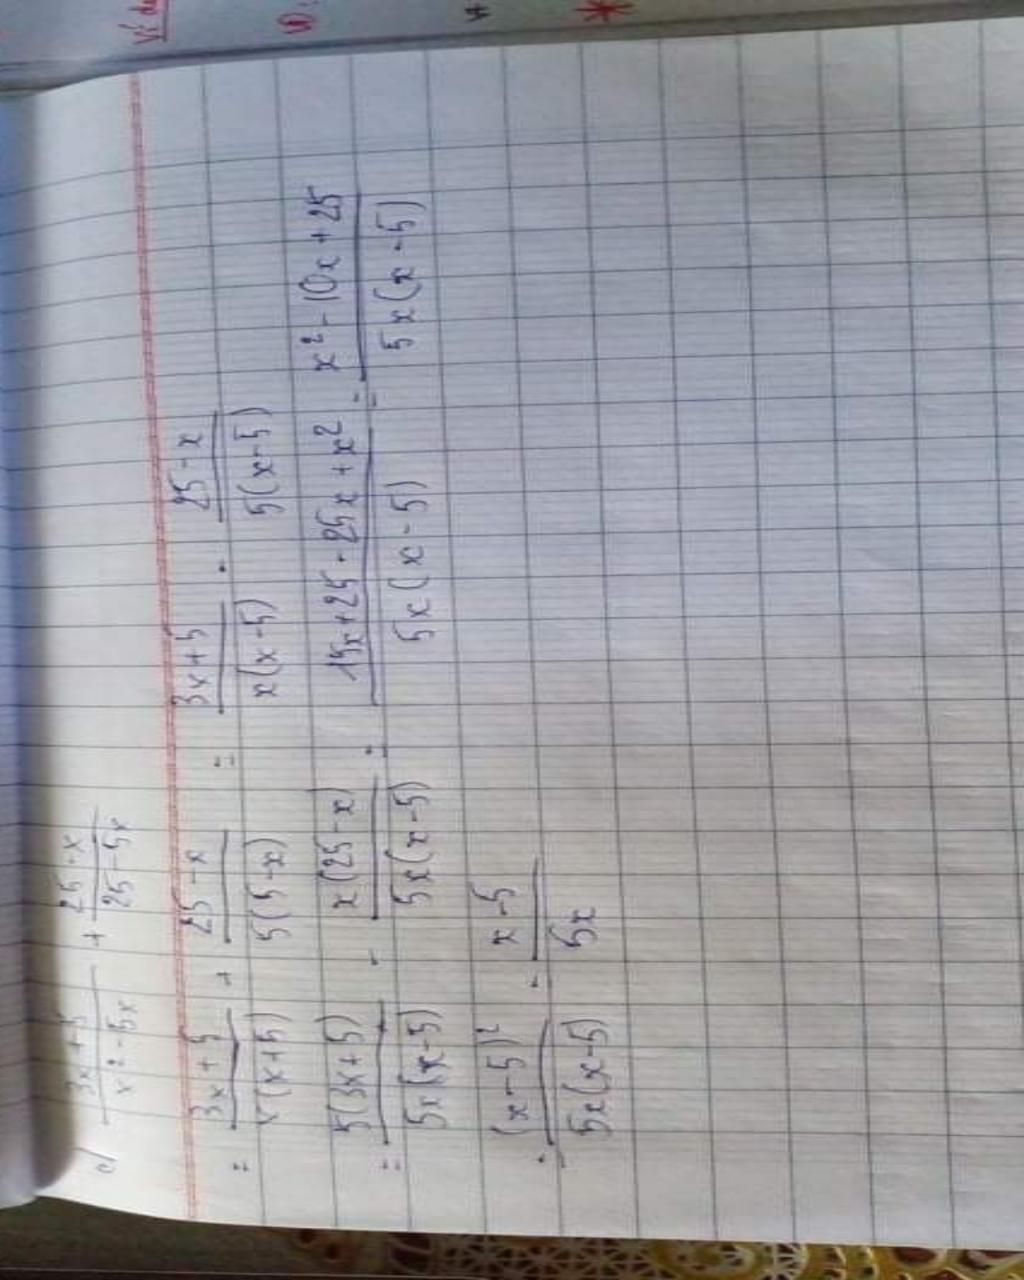 c) (3x+5)/(x²-5x) + (25-x)/(25-5x)
= (3x+5)/(x(x+5)) + (25-x)/(5(5-x)) = (3x+5)/(x(x-5)) - (25-x)/(5(x-5))
= 5(3x+5)/(5x(x-5)) - x(25-x)/(5x(x-5)) = (15x+25-25x+x²)/(5x(x-5)) = (x²-10x+25)/(5x(x-5))
= (x-5)²/(5x(x-5)) = (x-5)/(5x)